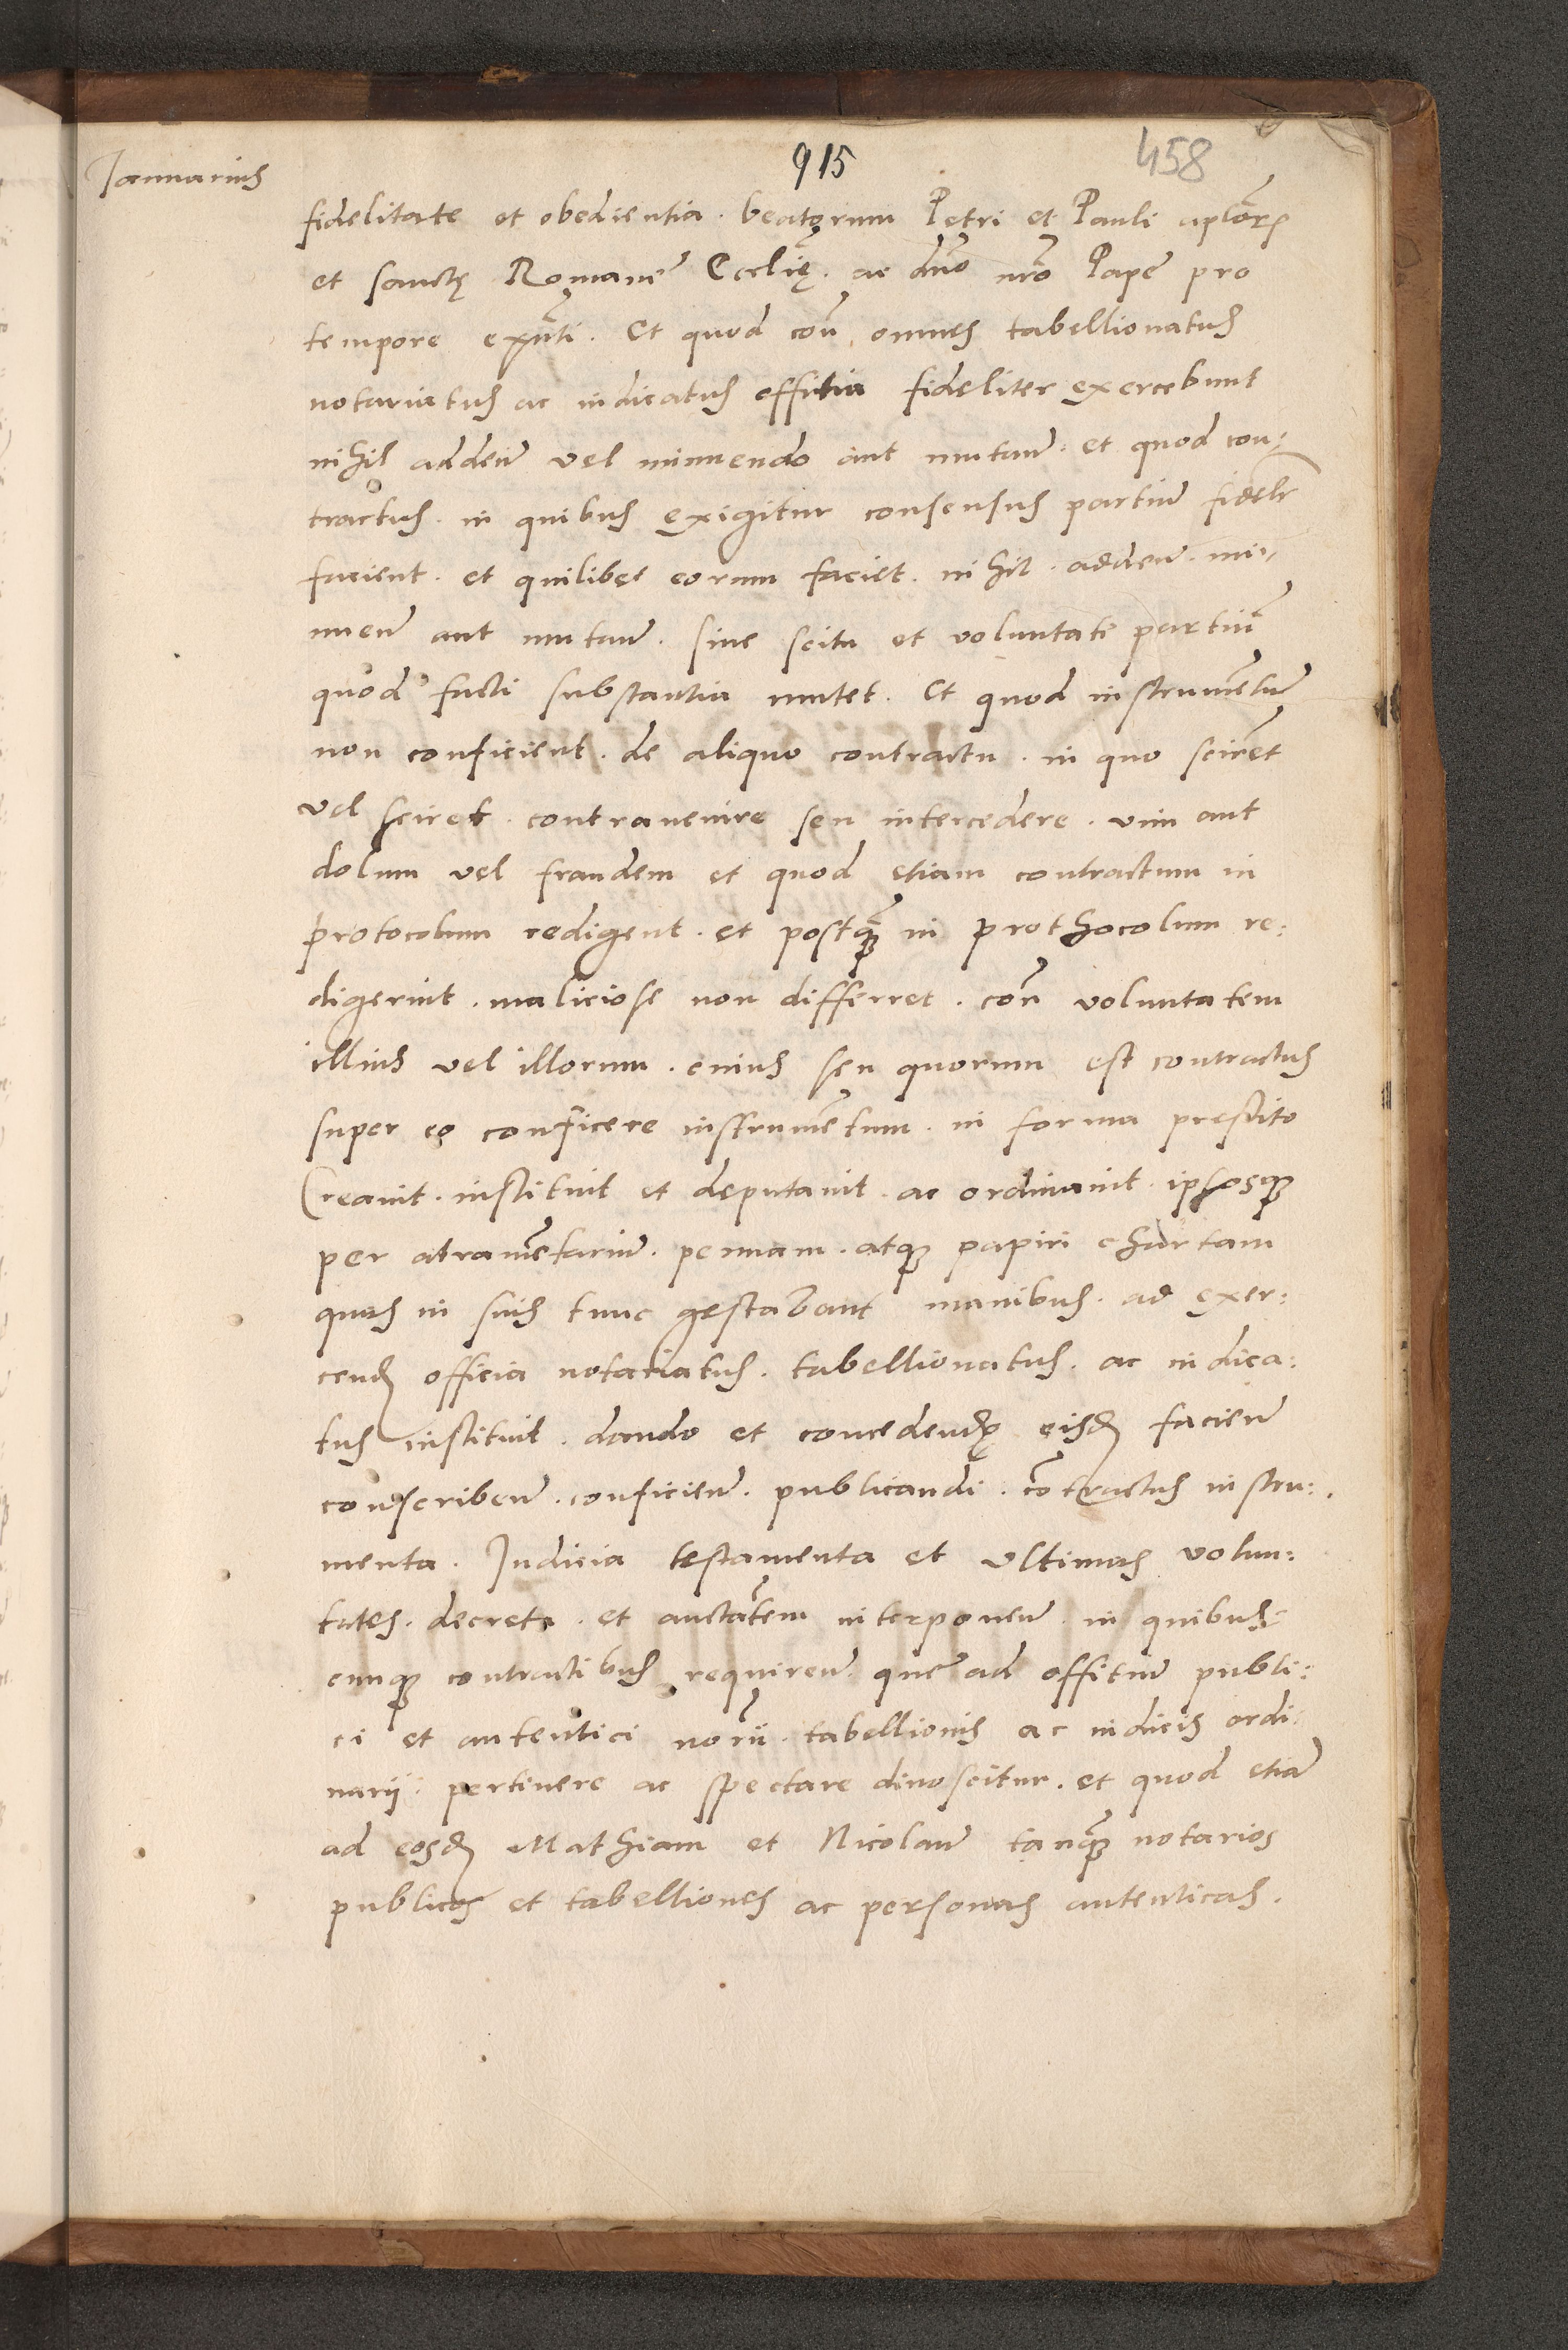 Januarius
915
458
fidelitate et obedientia. beatorum Petri et Pauli aplorꝫ
et sanctę Romanę Ecclię. ac dn̄o nr̄o Papę pro
tempore exn̄ti. Et quod con omnes tabellionatus
notariatus ac iudicatus offitia fideliter exercebunt
nihil addeн̄ vel minuendo aut mutan̄. et quod con-
tractus. in quibus exigitur consensus partiū fidelr
facient. et quilibet eorum faciet. nihil. adden̄. mi-
nuen̄ aut mutan̄. sine scitu et voluntatē partiū
quod facti substantia mutet. Et quod instrumētū
non conficient. de aliquo contractu. in quo scirēt
vel sciret. contravenire seu intercedere. vim aut
dolum vel fraudem et quod etiam contractum in
protocolum redigent. et postq̄ꝫ in prothocolum re:
digerint. maliciose non differret. con̄ voluntatem
illius vel illorum. cuius seu quorum est contractus
super eo conficere instrumētum. in forma prestito
Creavit. instituit et deputavit. ac ordinavit. ipsosqꝫ
per atramētariū. pennam. atqꝫ papiri chartam
quas in suis tunc gestabant manibus. ad exer:
cenꝺ officia notariatus. tabellionatus. ac iudica:
tus instituit. dando et concedendo eisꝺ facien̄
conscriben̄. conficien̄. publicandi. cōtractus instru:
menta. Judicia testamenta et ultimas volun:
tates. decreta. et auctātem interponen̄. in quibus
cunqꝫ contractibus requiren̄. que ad offitiū publi:
ci et autentici norij. tabellionis ac iudicis ordi
narij. pertinere ac spectare dinoscitur. et quod etiā
ad eosꝺ Mathiam et Nicolaū tanq̄ꝫ notarios
publicos et tabelliones ac personas autenticas.